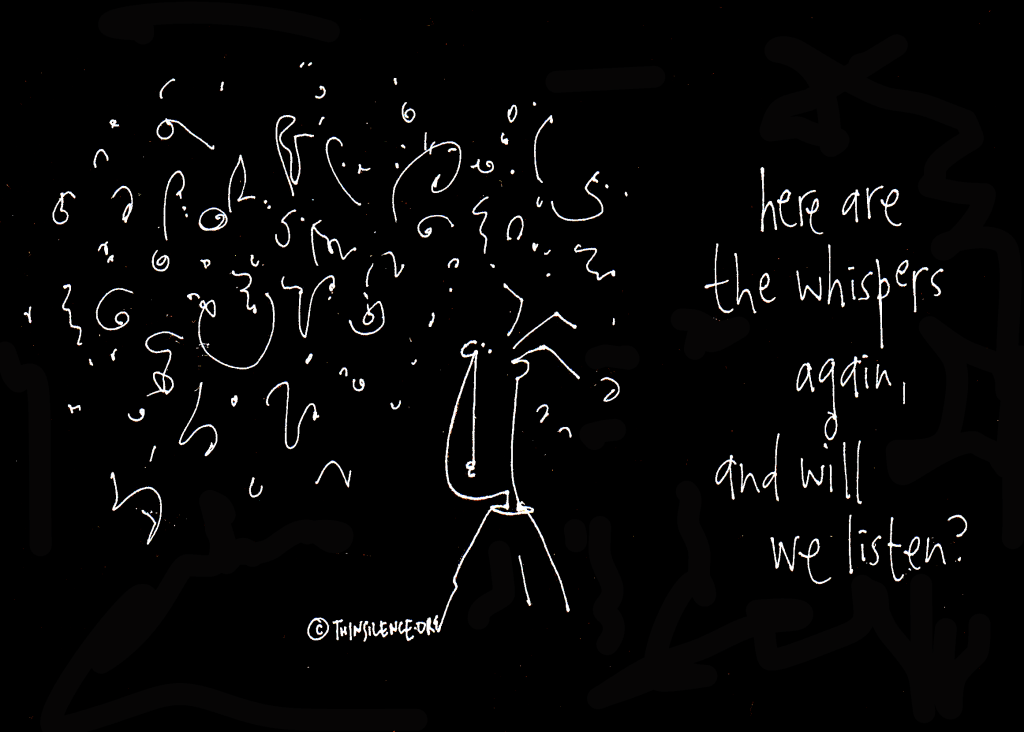 here are
the whispers
again,
and will
we listen?
© THINSILENCE.ORG